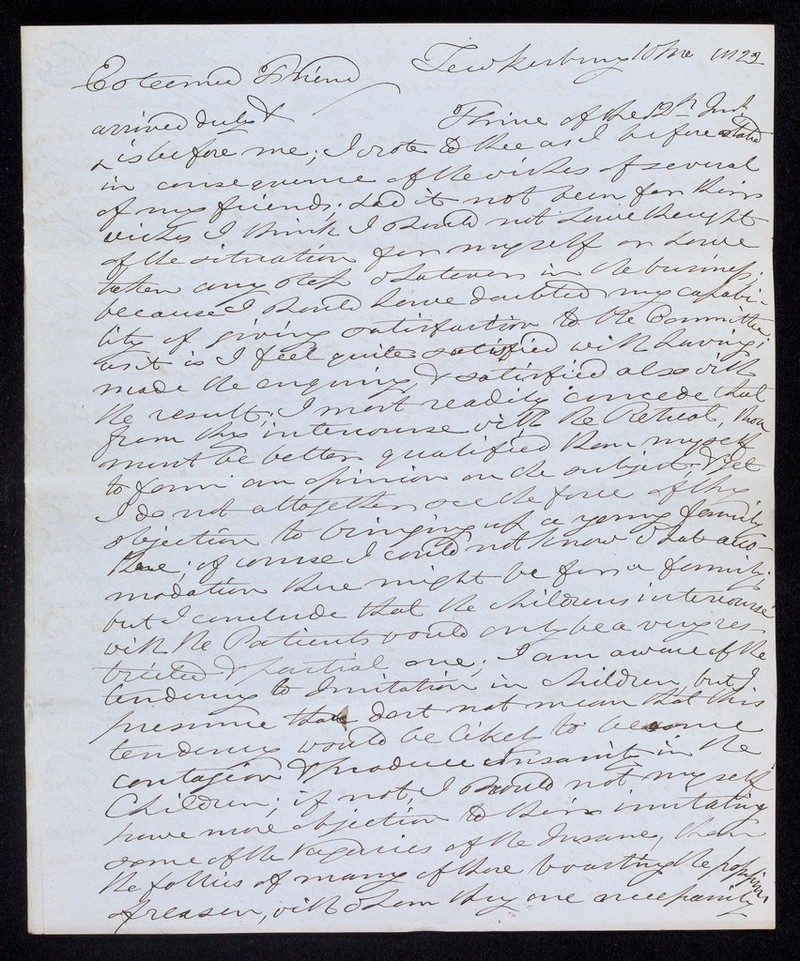 Tewkesbury 10 Mo 1822
Esteemed Friend
Thine of the 12th Inst
arrived duly &
is before me; I wrote to thee as I before stated
in consequence of the wishes of several
of my friends; had it not been for their
wishes I think I should not have thought
of the situation for myself or have
taken any step whatever in the business;
because I should have doubted my capabi-
lity of giving satisfaction to the Committee;
as it is I feel quite satisfied with having
made the enquiry, & satisfied also with
the result; I most readily concede that
from thy intercourse with the Retreat, thou
must be better qualified than myself
to form an opinion on the subject; & yet
I do not altogether see the force of thy
objection to bringing up a young family
there; of course I could not know what acco-
modation there might be for a family;
but I conclude that the childrens intercourse
with the Patients would only be a very res-
tricted & partial one; I am aware of the
tendency to Imitation in children, but I
presume thou dost not mean that this
tendency would be likely to become
contagion & produce insanity in the
Children; if not, I should not myself
have more objection to their imitating
some of the Vagaries of the Insane, than
the follies of many of those boasting the possession
of reason, with whom they are necessarily